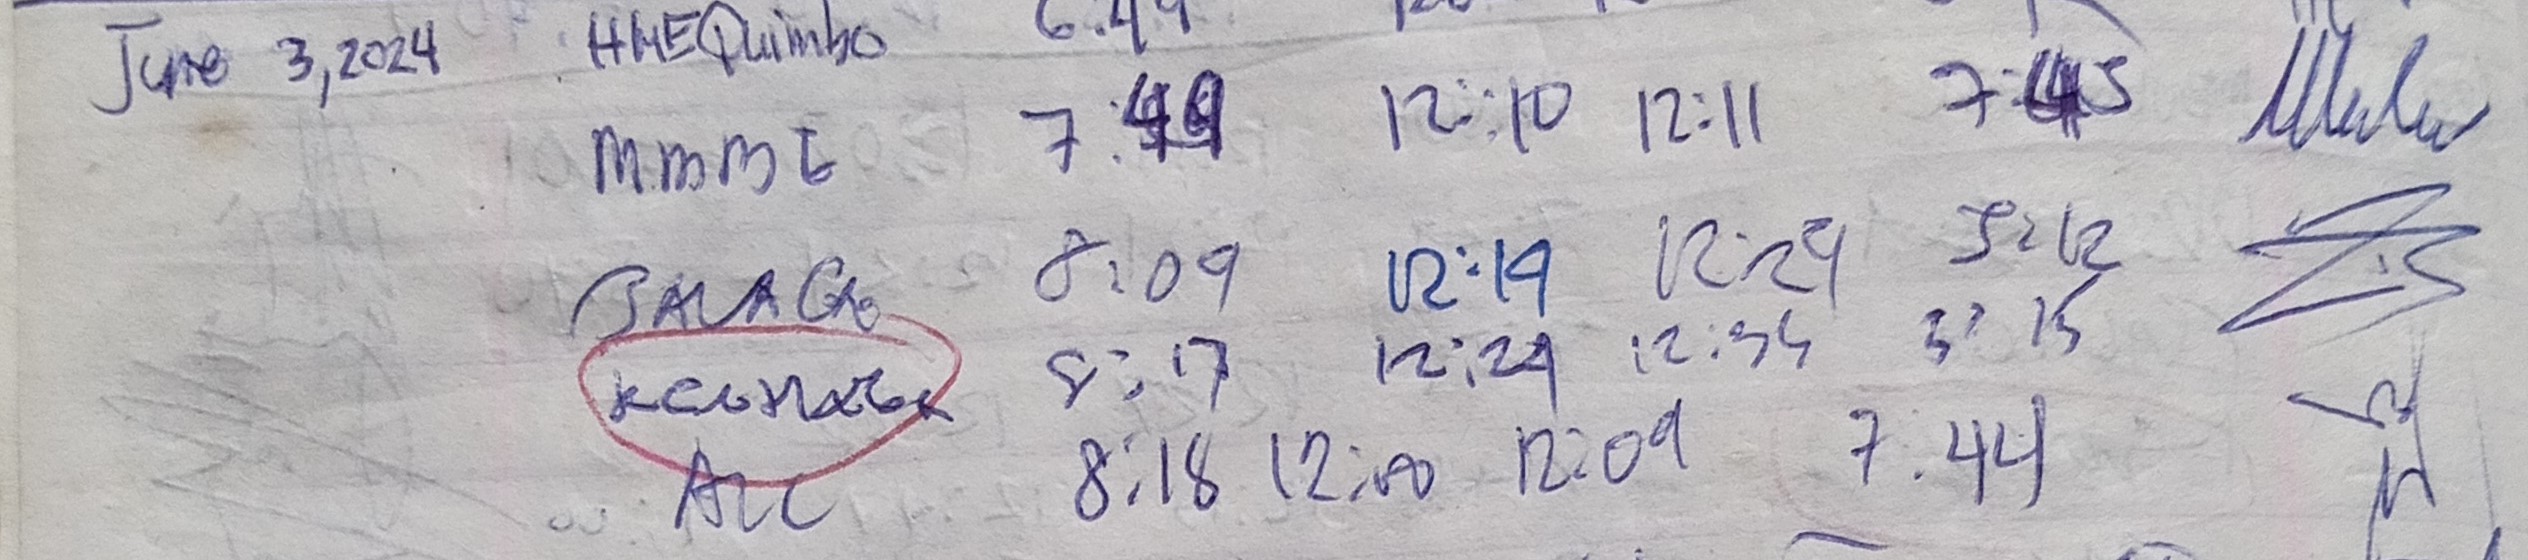 June 3, 2024 HMEQuimbo 6:49
MMME 7:49 12:10 12:11 7:45
8:09 12:19 12:29 5:12
8:17 12:29 12:34 5:15
ALC 8:18 12:00 12:09 7.44